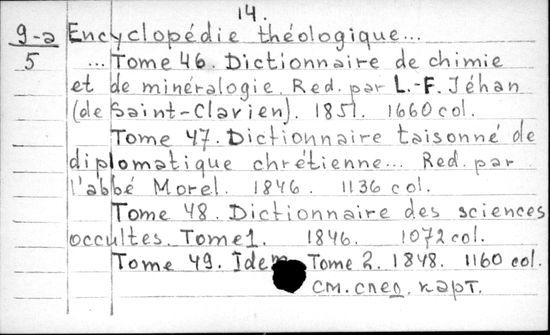 14.
9-a Encyclopédie théologique...
5 ... Tome 46. Dictionnaire de chimie
et de minéralogie. Red. par L.-F. Jéhan
(de Saint-Clavien). 1851. 1660 col.
Tome 47. Dictionnaire taisonné de
diplomatique chrétienne... Red. par
l'abbé Morel. 1846. 1136 col.
Tome 48. Dictionnaire des sciences
occultes. Tome 1. 1846. 1072 col.
Tome 49. Idem. Tome 2. 1848. 1160 col.
см. след. карт.